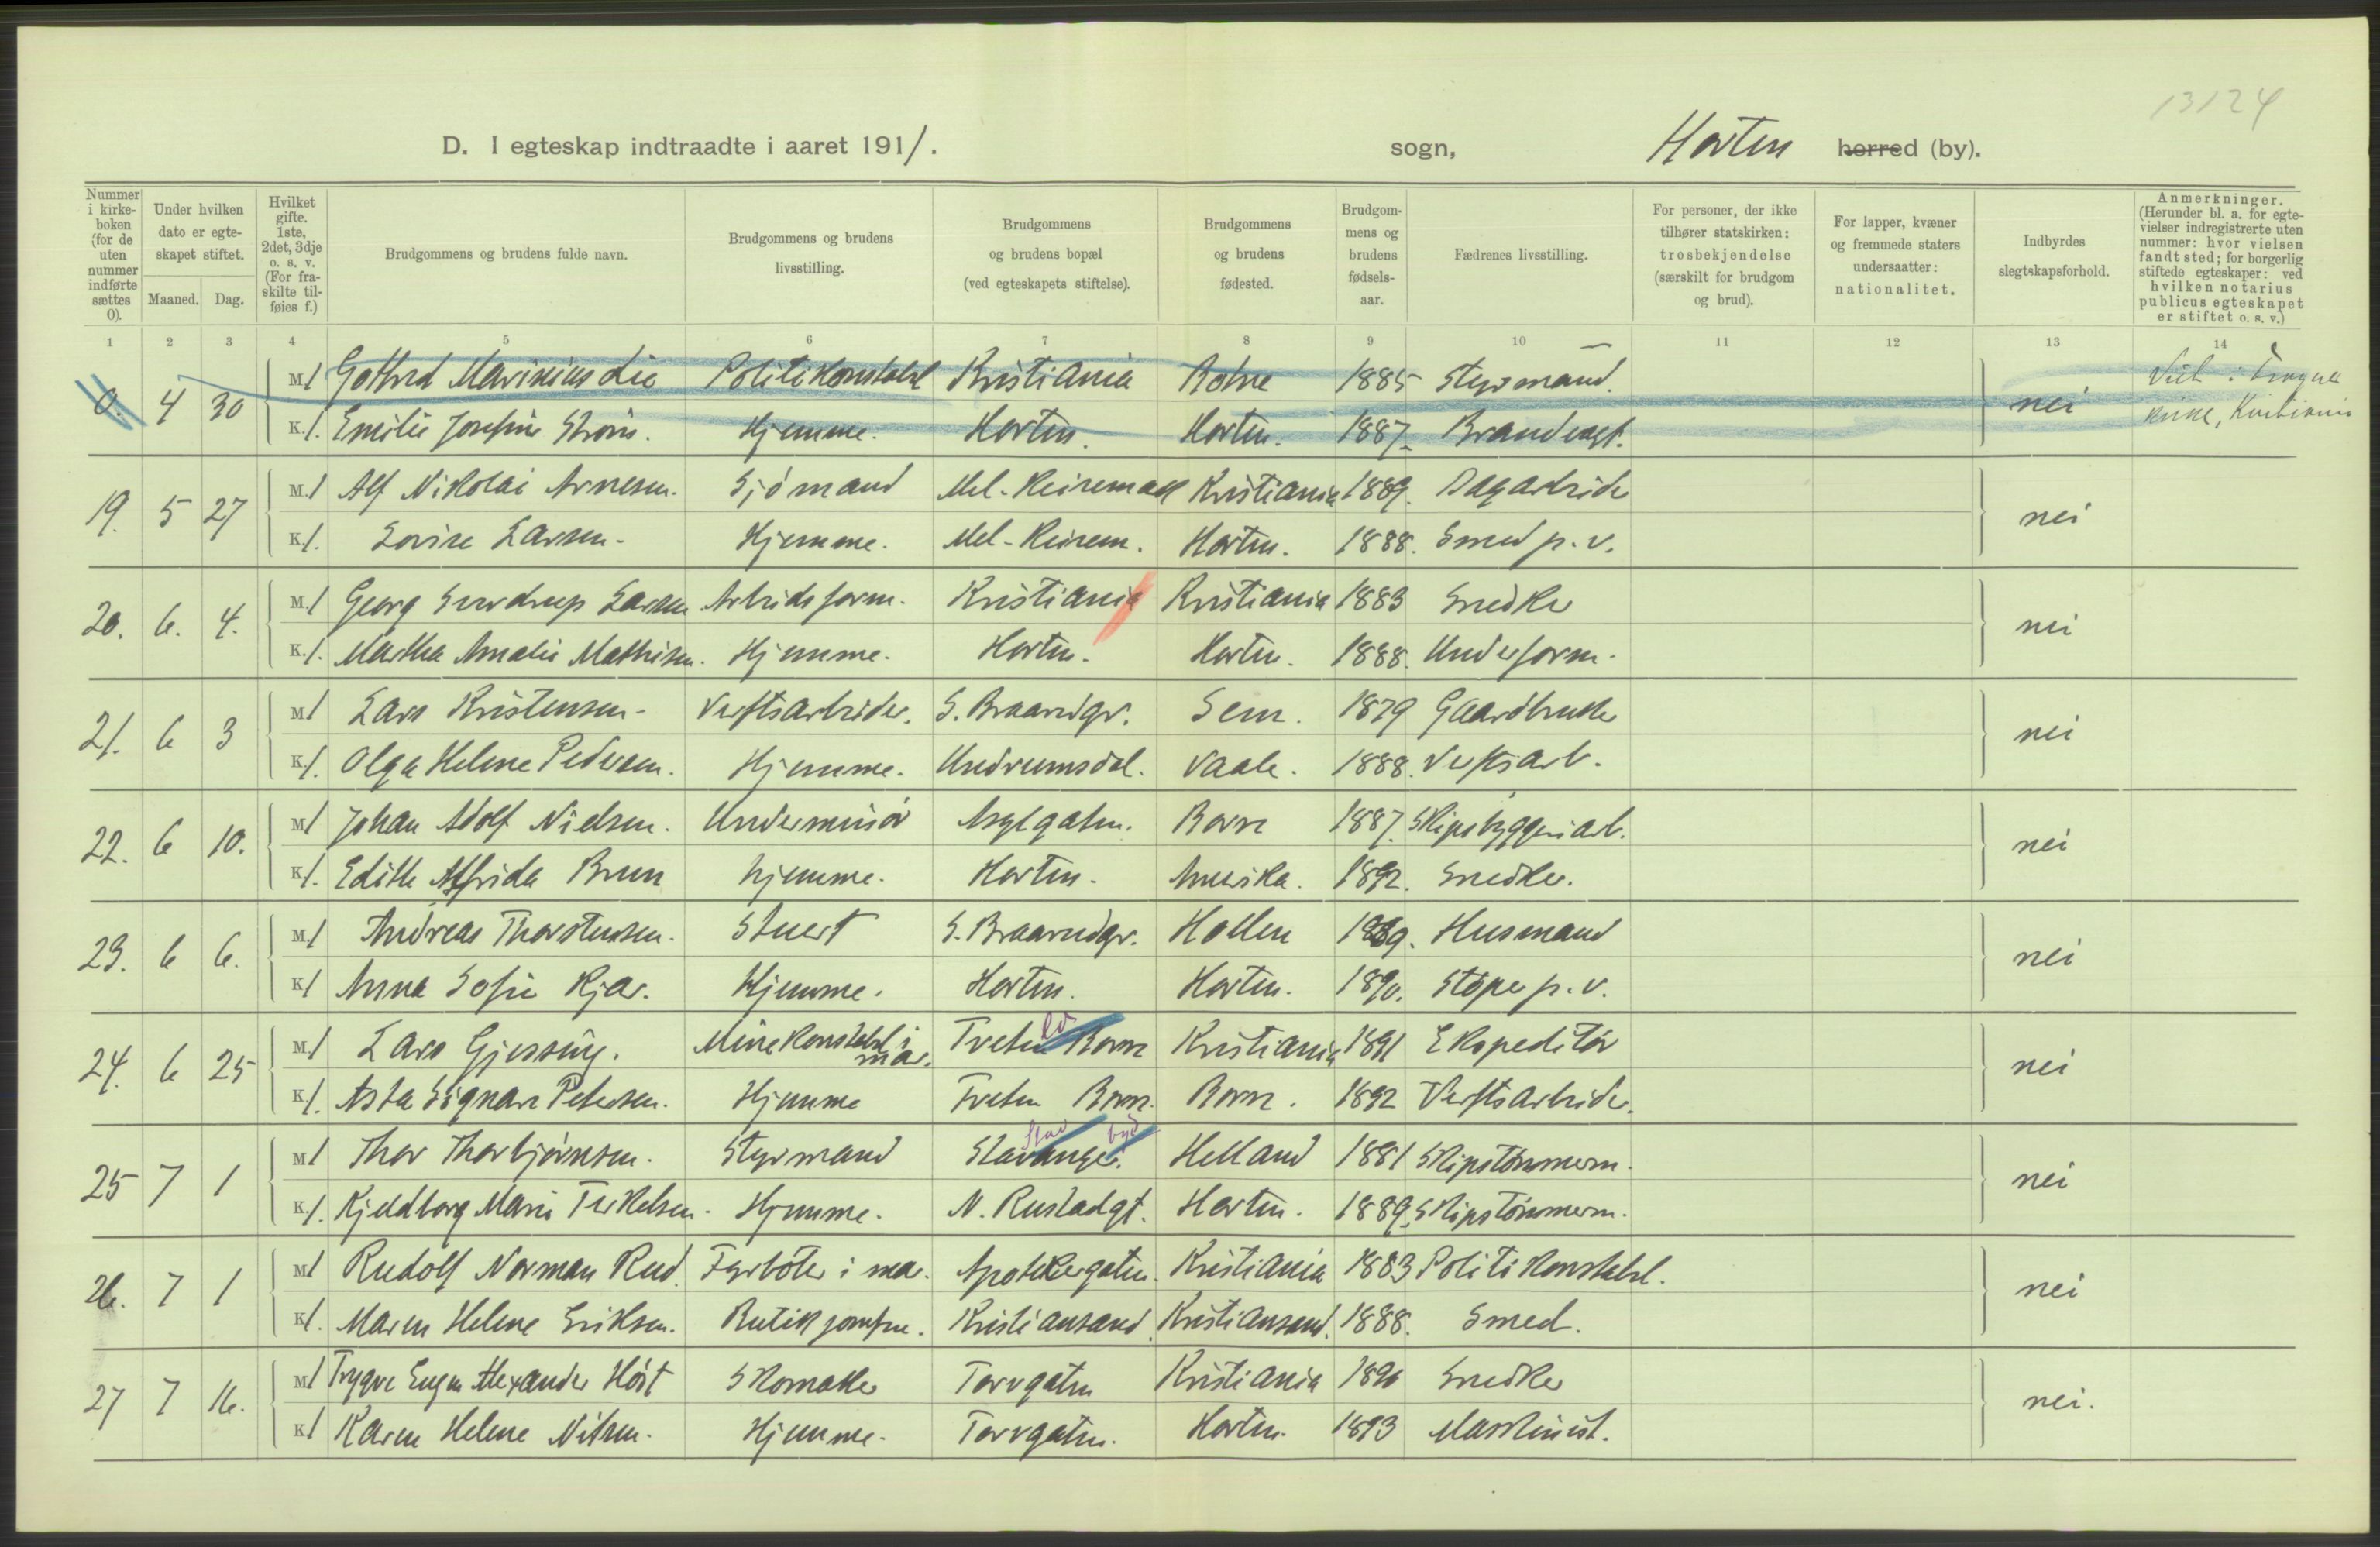 13124
D. I egteskap indtraadte i aaret 1911. sogn, Horten herred (by).
Nummer i kirkeboken (for de uten nummer indførte sættes 0).
Under hvilken dato er egteskapet stiftet.
Maaned. Dag.
Hvilket gifte. 1ste, 2det, 3dje o. s. v. (For fraskilte tilføies f.)
Brudgommens og brudens fulde navn.
Brudgommens og brudens livsstilling.
Brudgommens og brudens bopæl (ved egteskapets stiftelse).
Brudgommens og brudens fødested.
Brudgommens og brudens fødselsaar.
Fædrenes livsstilling.
For personer, der ikke tilhører statskirken: trosbekjendelse (særskilt for brudgom og brud).
For lapper, kvæner og fremmede staters undersaatter: nationalitet.
Indbyrdes slegtskapsforhold.
Anmerkninger. (Herunder bl. a. for egtevielser indregistrerte uten nummer: hvor vielsen fandt sted; for borgerlig stiftede egteskaper: ved hvilken notarius publicus egteskapet er stiftet o. s. v.)
1 2 3 4 5 6 7 8 9 10 11 12 13 14
0. 4 30 M. 1 Marinius Lie Politikonstabel Kristiania 1885 Styrmand. nei
K. 1. Emilie Josefine Strøm. Hjemme. Horten. Horten. 1887. Brandvagt. kirke, Kristiania
19. 5 27 M. 1 Alf Nikolai Arnesen. Sjømand Kristiania 1889. Dagarbeider nei
K. 1. Lovise Larsen. Hjemme. Horten. 1888. Smed p. v.
20. 6. 4. M. 1 Georg Sverdrup Larsen Arbeidsform. Kristiania Kristiania 1883 Snedker nei
K. 1. Martha Amalie Mathisen. Hjemme. Horten. Horten. 1888. Underform.
21. 6 3 M. 1 Lars Kristensen. Verftsarbeider. S. Braarudgt. Sem. 1879 Gaardbruker nei
K. 1. Olga Helene Pedersen. Hjemme. Undrumsdal. Vaale. 1888. Verftsarb.
22. 6 10. M. 1 Johan Adolf Nielsen. Underminør Asylgaten. Borre 1887. Skipsbyggeriarb. nei
K. 1. Edith Alfrida Brun hjemme. Horten. Amerika. 1892. Snedker.
23. 6 6. M. 1 Andreas Thorstensen. Stuert S. Braarudgt. Hollen 1889. Husmand nei
K. 1 Anna Sofie Kjær. Hjemme. Horten. Horten. 1890. Støper p. v.
24. 6 25 M. 1 Lars Gjessing. Minekonstabel i mar. Tveten Borre Kristiania 1891 Ekspeditør nei
K. 1. Asta Signare Petersen. Hjemme Tveten Borre. Borre. 1892 Verftsarbeider.
25 7 1 M. 1 Thor Thorbjørnsen. Styrmand Stavanger. Helland 1881 Skipstømmerm. nei
K. 1. Kjeldborg Marie Terkelsen. Hjemme. N. Rustadgt. Horten. 1889. Skipstømmerm.
26. 7 1 M. 1 Rudolf Norman Rud. Fyrbøter i mar. Apotekergaten. Kristiania 1883 Politikonstabel. nei
K. 1. Maren Helene Eriksen. Butikjomfru. Kristiansand Kristiansand. 1888. Smed.
27 7 16. M. 1 Trygve Eugen Alexander Høst Skomaker Torvgaten Kristiania 1890 Snedker nei.
K. 1 Karen Helene Nilsen. Hjemme. Torvgaten. Horten. 1893 Maskinist.